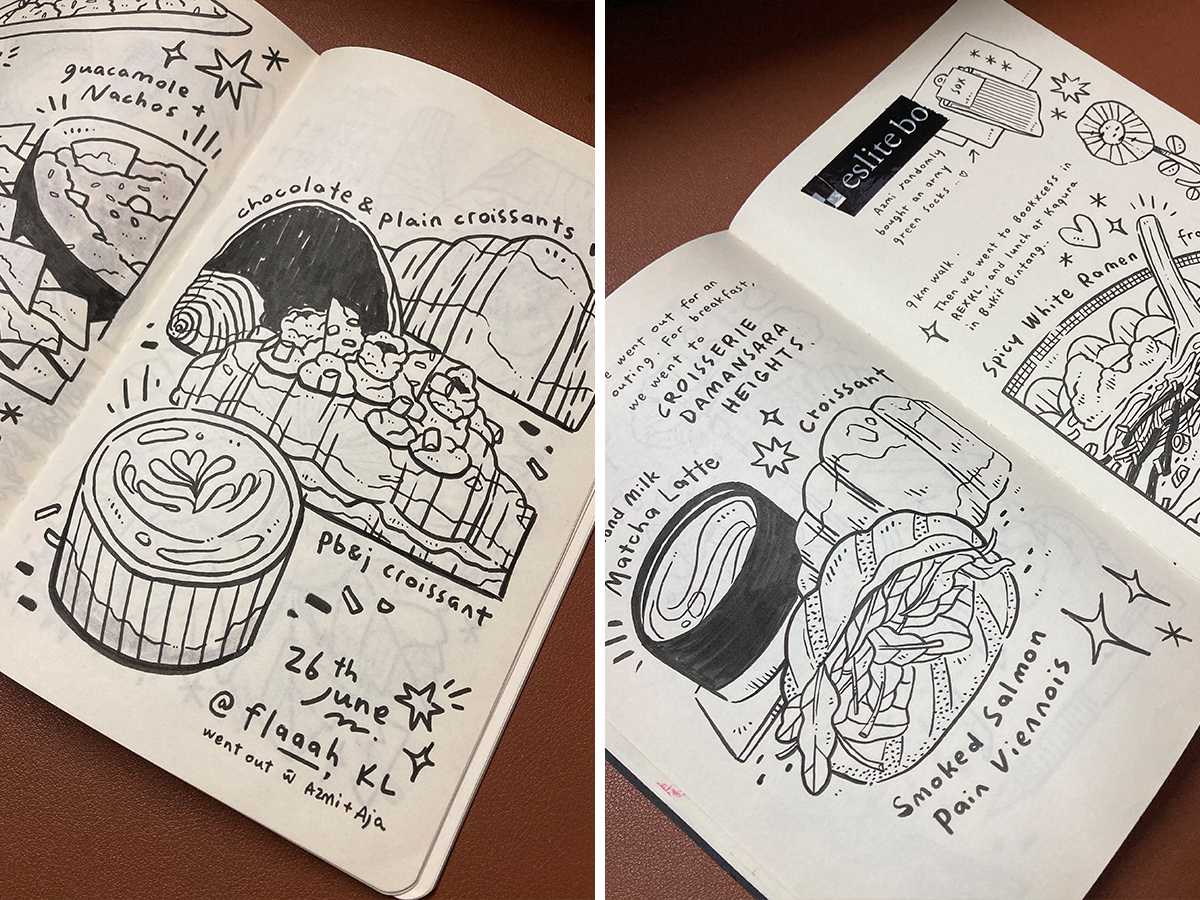 guacamole
Nachos +
chocolate & plain croissants
pb&j croissant
26th
June
@ flaaah, KL
went out w̄ Azmi + Aja
sox
eslite bo
Azmi randomly
bought an army
green socks ..
9 km walk .
Then we went to Bookxcess in
REXKL, and lunch at Kagura
in Bukit Bintang..
Spicy White Ramen
we went out for an
outing. For breakfast,
we went to
CROISSERIE
DAMANSARA
HEIGHTS.
Croissant
Milk
Matcha Latte
Smoked Salmon
Pain Viennois